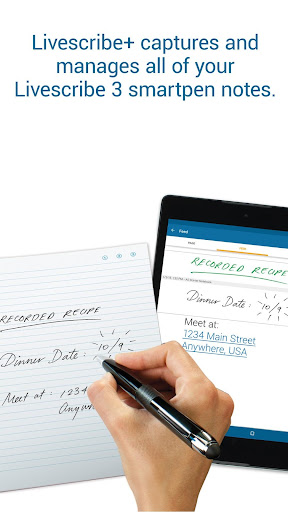 Livescribe+ captures and
manages all of your
Livescribe 3 smartpen notes.
RECORDED RECIPE
Dinner Date: 10/9
Meet at: 1234
Anywhere,
Feed
PAGE
FEED
RECORDED RECIPE
Dinner Date: 10/9
Meet at:
1234 Main Street
Anywhere, USA